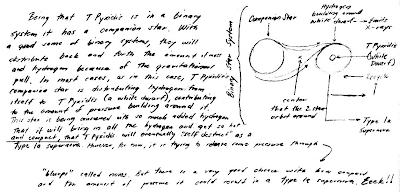 Being that T Pyxidis is in a binary
system it has a companion star. With
a good some of binary systems, they will
distribute back and forth the amount of mass
and hydrogen because of the gravitational
pull. In most cases, as in this case, T Pyxidis's
companion star is distributing hydrogen from
itself to T Pyxidis (a white dwarf), contributing
to the amount of pressure building around it.
This star is being consumed with so much added hydrogen
that it will bring in all the hydrogen and get so hot
and compact, that T Pyxidis will eventually "self destruct" as a
Type Ia supernova. However, for now, it is trying to release some pressure through
"burps" called novas. But there is a very good chance with how compact
and the amount of pressure it could result in a Type Ia supernova. Eeek!!
Binary Star System
Companion Star
Hydrogen
building around
white dwarf - emits
X-rays
T Pyxidis
(White
Dwarf)
center
that the 2 stars
orbit around
Type Ia
Supernova